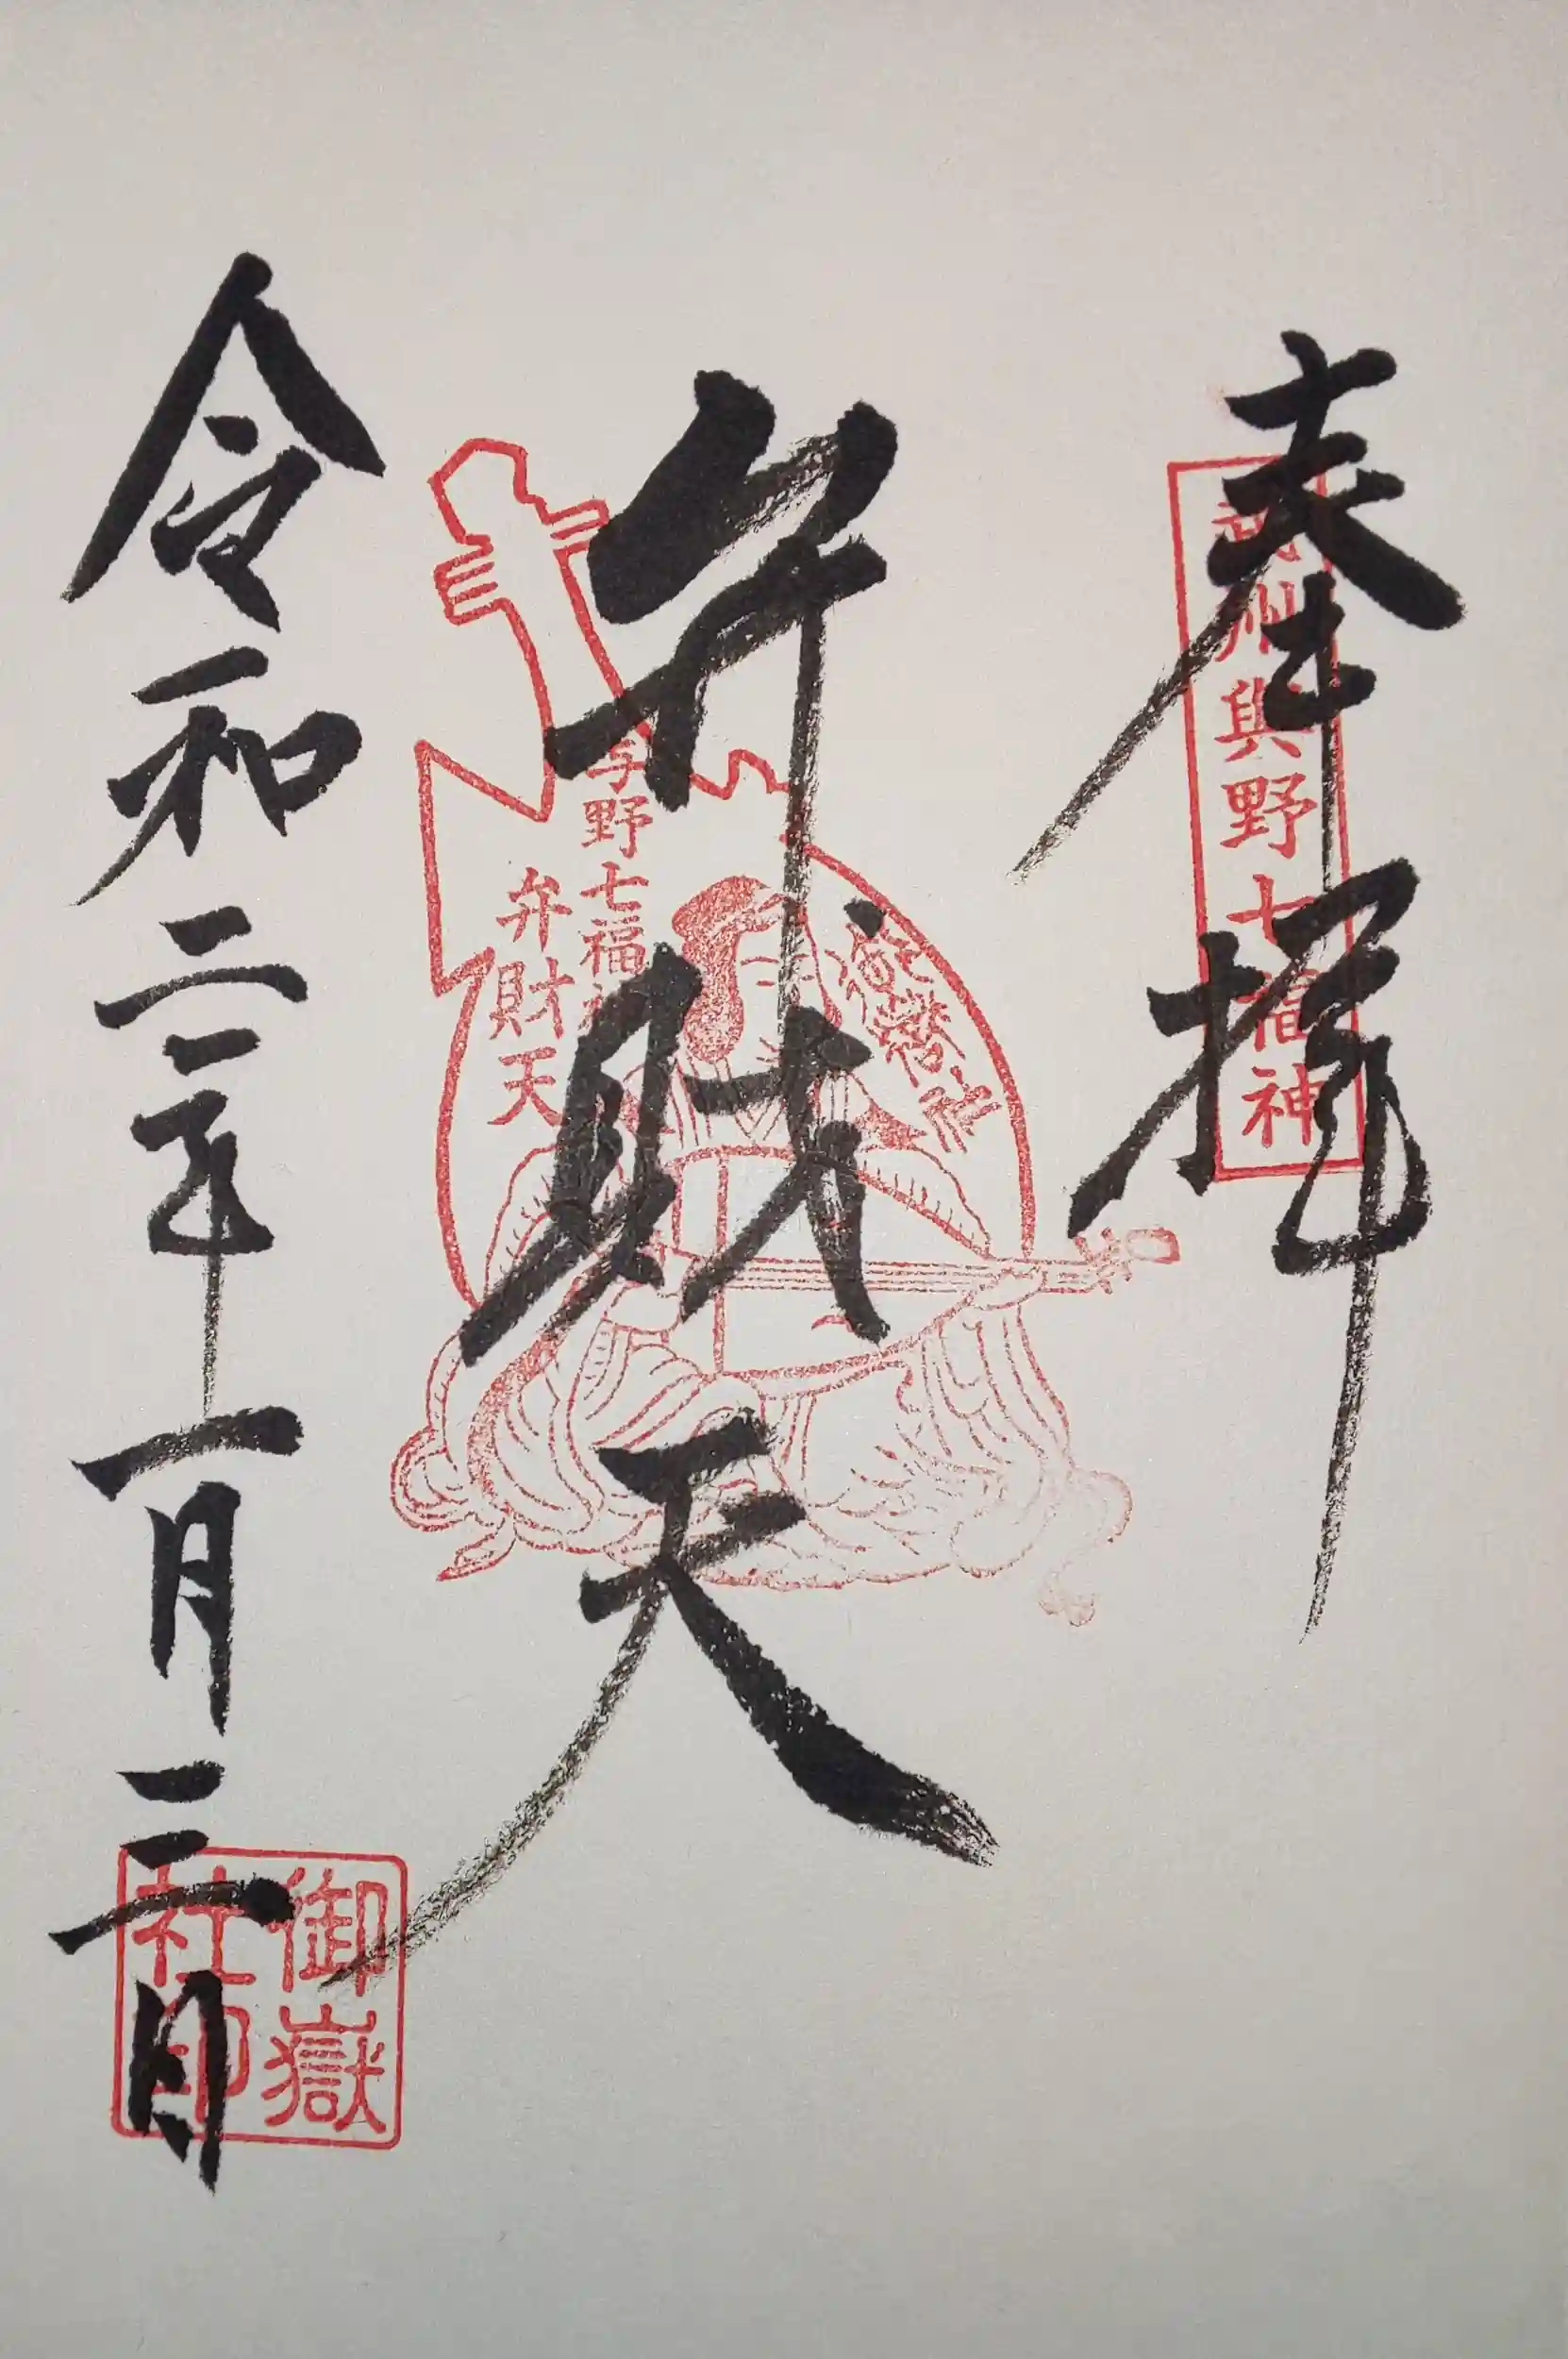 奉拝
武州與野七福神
弁財天
与野七福神
弁財天
令和二年一月三日
御嶽
社印